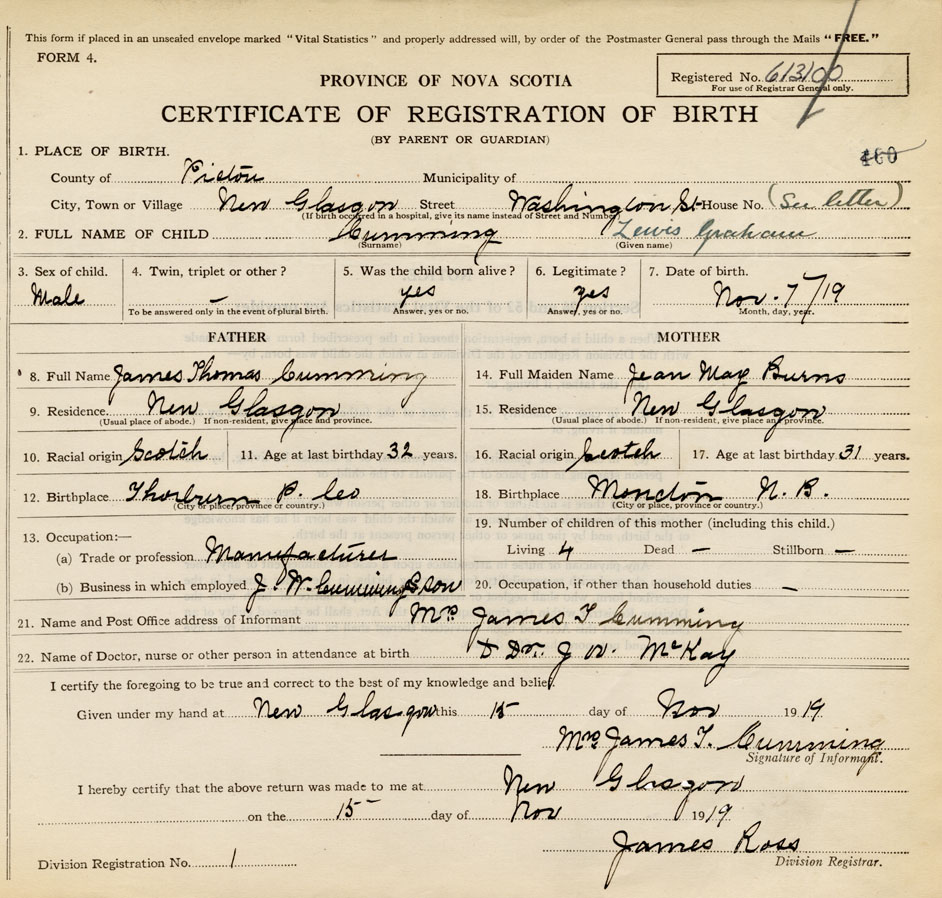 This form if placed in an unsealed envelope marked "Vital Statistics" and properly addressed will, by order of the Postmaster General pass through the Mails "FREE."
FORM 4.
PROVINCE OF NOVA SCOTIA
Registered No. 613100
For use of Registrar General only.
CERTIFICATE OF REGISTRATION OF BIRTH
(BY PARENT OR GUARDIAN)
1. PLACE OF BIRTH.
County of Pictou Municipality of
City, Town or Village New Glasgow Street Washington St House No. (See letter)
(If birth occurred in a hospital, give its name instead of Street and Number)
2. FULL NAME OF CHILD Cumming Lewis Graham
(Surname) (Given name)
3. Sex of child. 4. Twin, triplet or other? 5. Was the child born alive? 6. Legitimate? 7. Date of birth.
Male — yes yes Nov. 7/19
To be answered only in the event of plural birth. Answer, yes or no. Answer, yes or no. Month, day, year.
FATHER MOTHER
8. Full Name James Thomas Cumming 14. Full Maiden Name Jean May Burns
9. Residence. New Glasgow 15. Residence New Glasgow
(Usual place of abode.) If non-resident, give place and province. (Usual place of abode.) If non-resident, give place and province.
10. Racial origin Scotch 11. Age at last birthday 32 years. 16. Racial origin Scotch 17. Age at last birthday 31 years.
12. Birthplace Thorburn P. Co 18. Birthplace Moncton N. B.
(City or place, province or country.) (City or place, province or country.)
13. Occupation:— 19. Number of children of this mother (including this child.)
(a) Trade or profession Manufacturer Living 4 Dead — Stillborn —
(b) Business in which employed J. W. Cumming & Son 20. Occupation, if other than household duties —
21. Name and Post Office address of Informant Mrs James T Cumming
22. Name of Doctor, nurse or other person in attendance at birth + Dr. J W. McKay
I certify the foregoing to be true and correct to the best of my knowledge and belief.
Given under my hand at New Glasgow this 15 day of Nov 1919
Mrs James T. Cumming
Signature of Informant.
I hereby certify that the above return was made to me at New Glasgow
on the 15 day of Nov 1919
James Ross
Division Registrar.
Division Registration No. 1